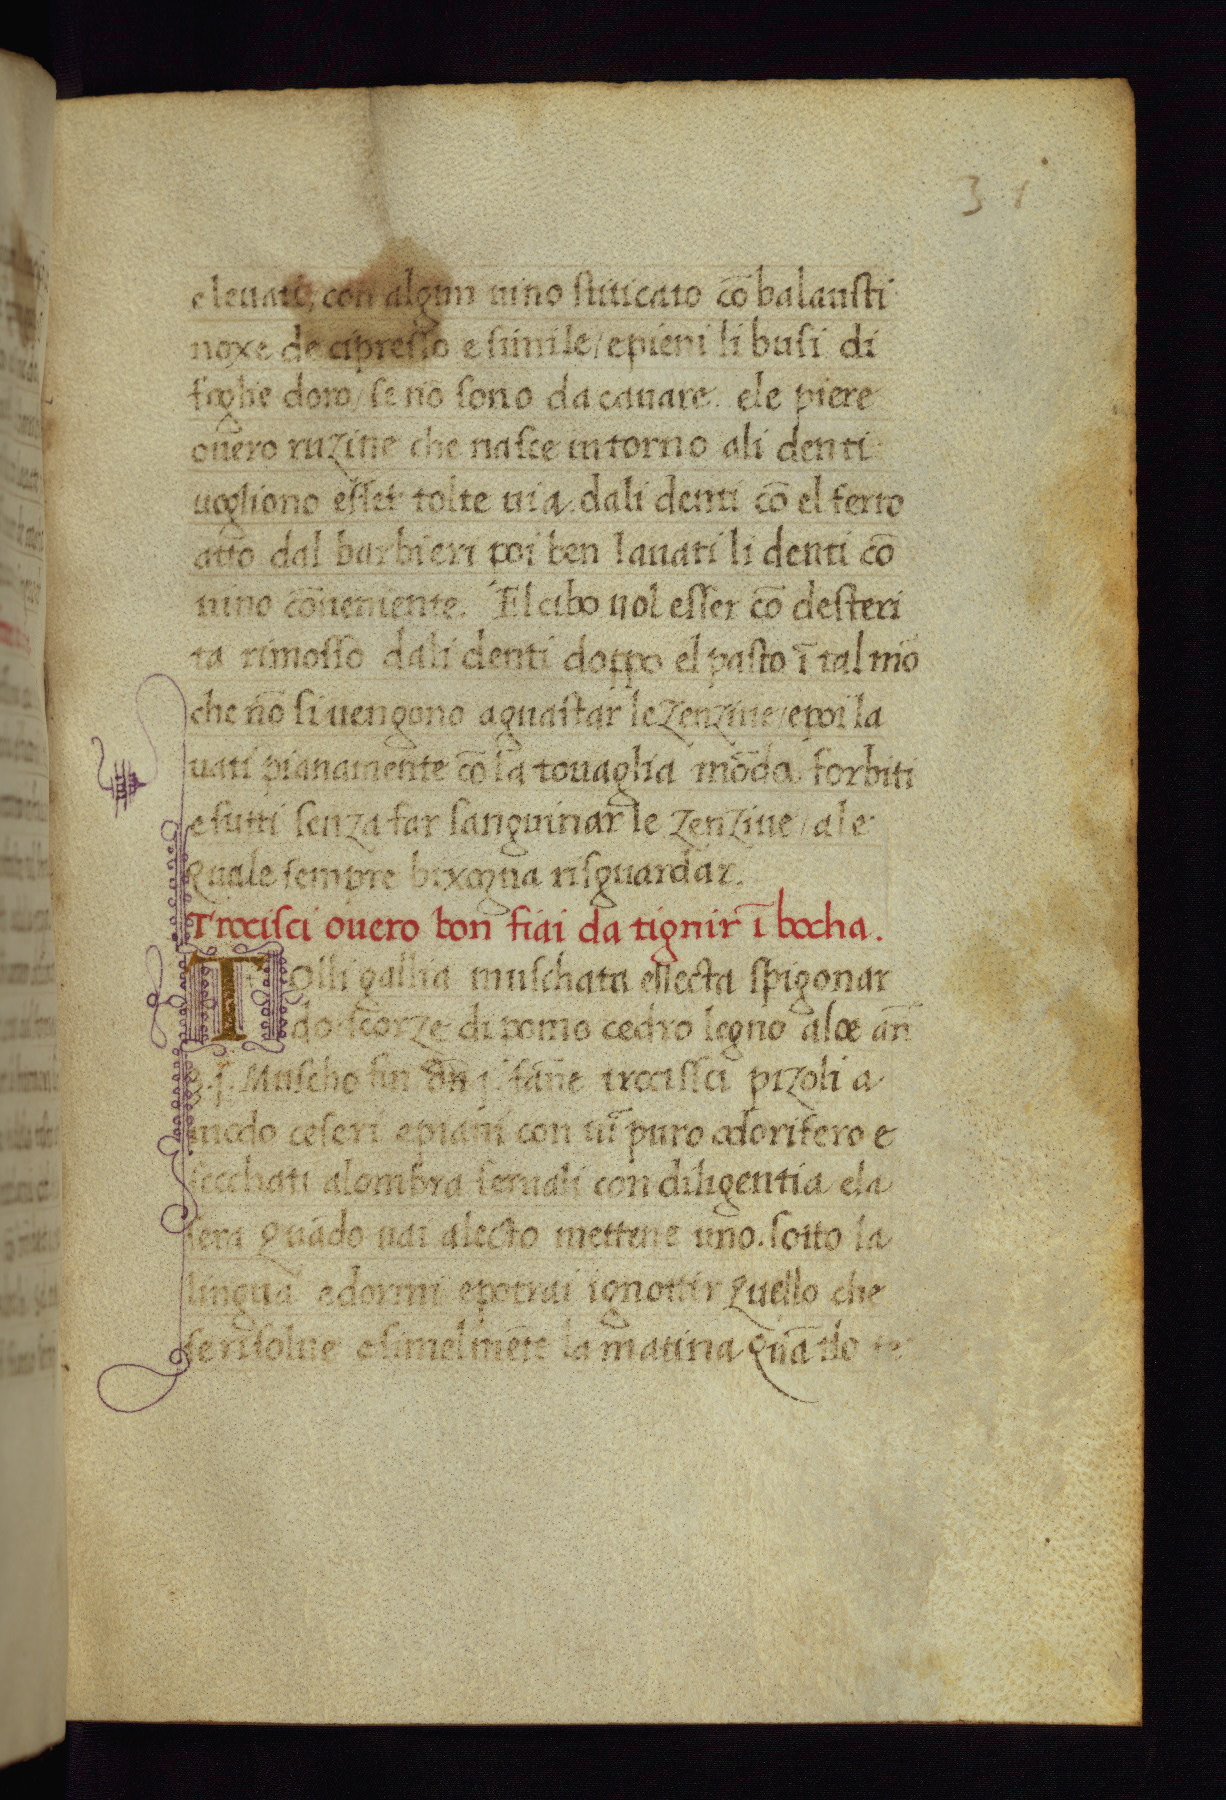 31
elevati, con algun vino stiticato cō balausti
noxe de cipresso e simile / e pieni li busi di
foglie doro / se nō sono da cavare. e le piere
overo ruzine che nasce intorno ali denti
vogliono esser tolte via dali denti cō el ferro
atto dal barbieri poi ben lavati li denti cō
vino cōveniente. El cibo vol esser cō desteri
ta rimosso dali denti doppo el pasto ī tal mō
che nō si vengono a guastar le zenzive / e poi la
vati pianamente cō la tovaglia mōda forbiti
e sutti senza far sanguinar le zenzive / ale
quale sempre bixogna risguardar.
Trocisci overo bon fiai da tignir ī bocha.
Tolli gallia muschata ellecta spigonar
do scorze di pomo cedro legno aloe an̄
ʒ. j. Muscho fin j. fāne trocissci pizoli a
modo ceseri e piani con vī puro odorifero e
secchati alombra servali con diligentia e la
sera quādo vai alecto mettene uno sotto la
lingua e dormi e potrai ignottir quello che
se risolve e simelmēte la matina quādo te